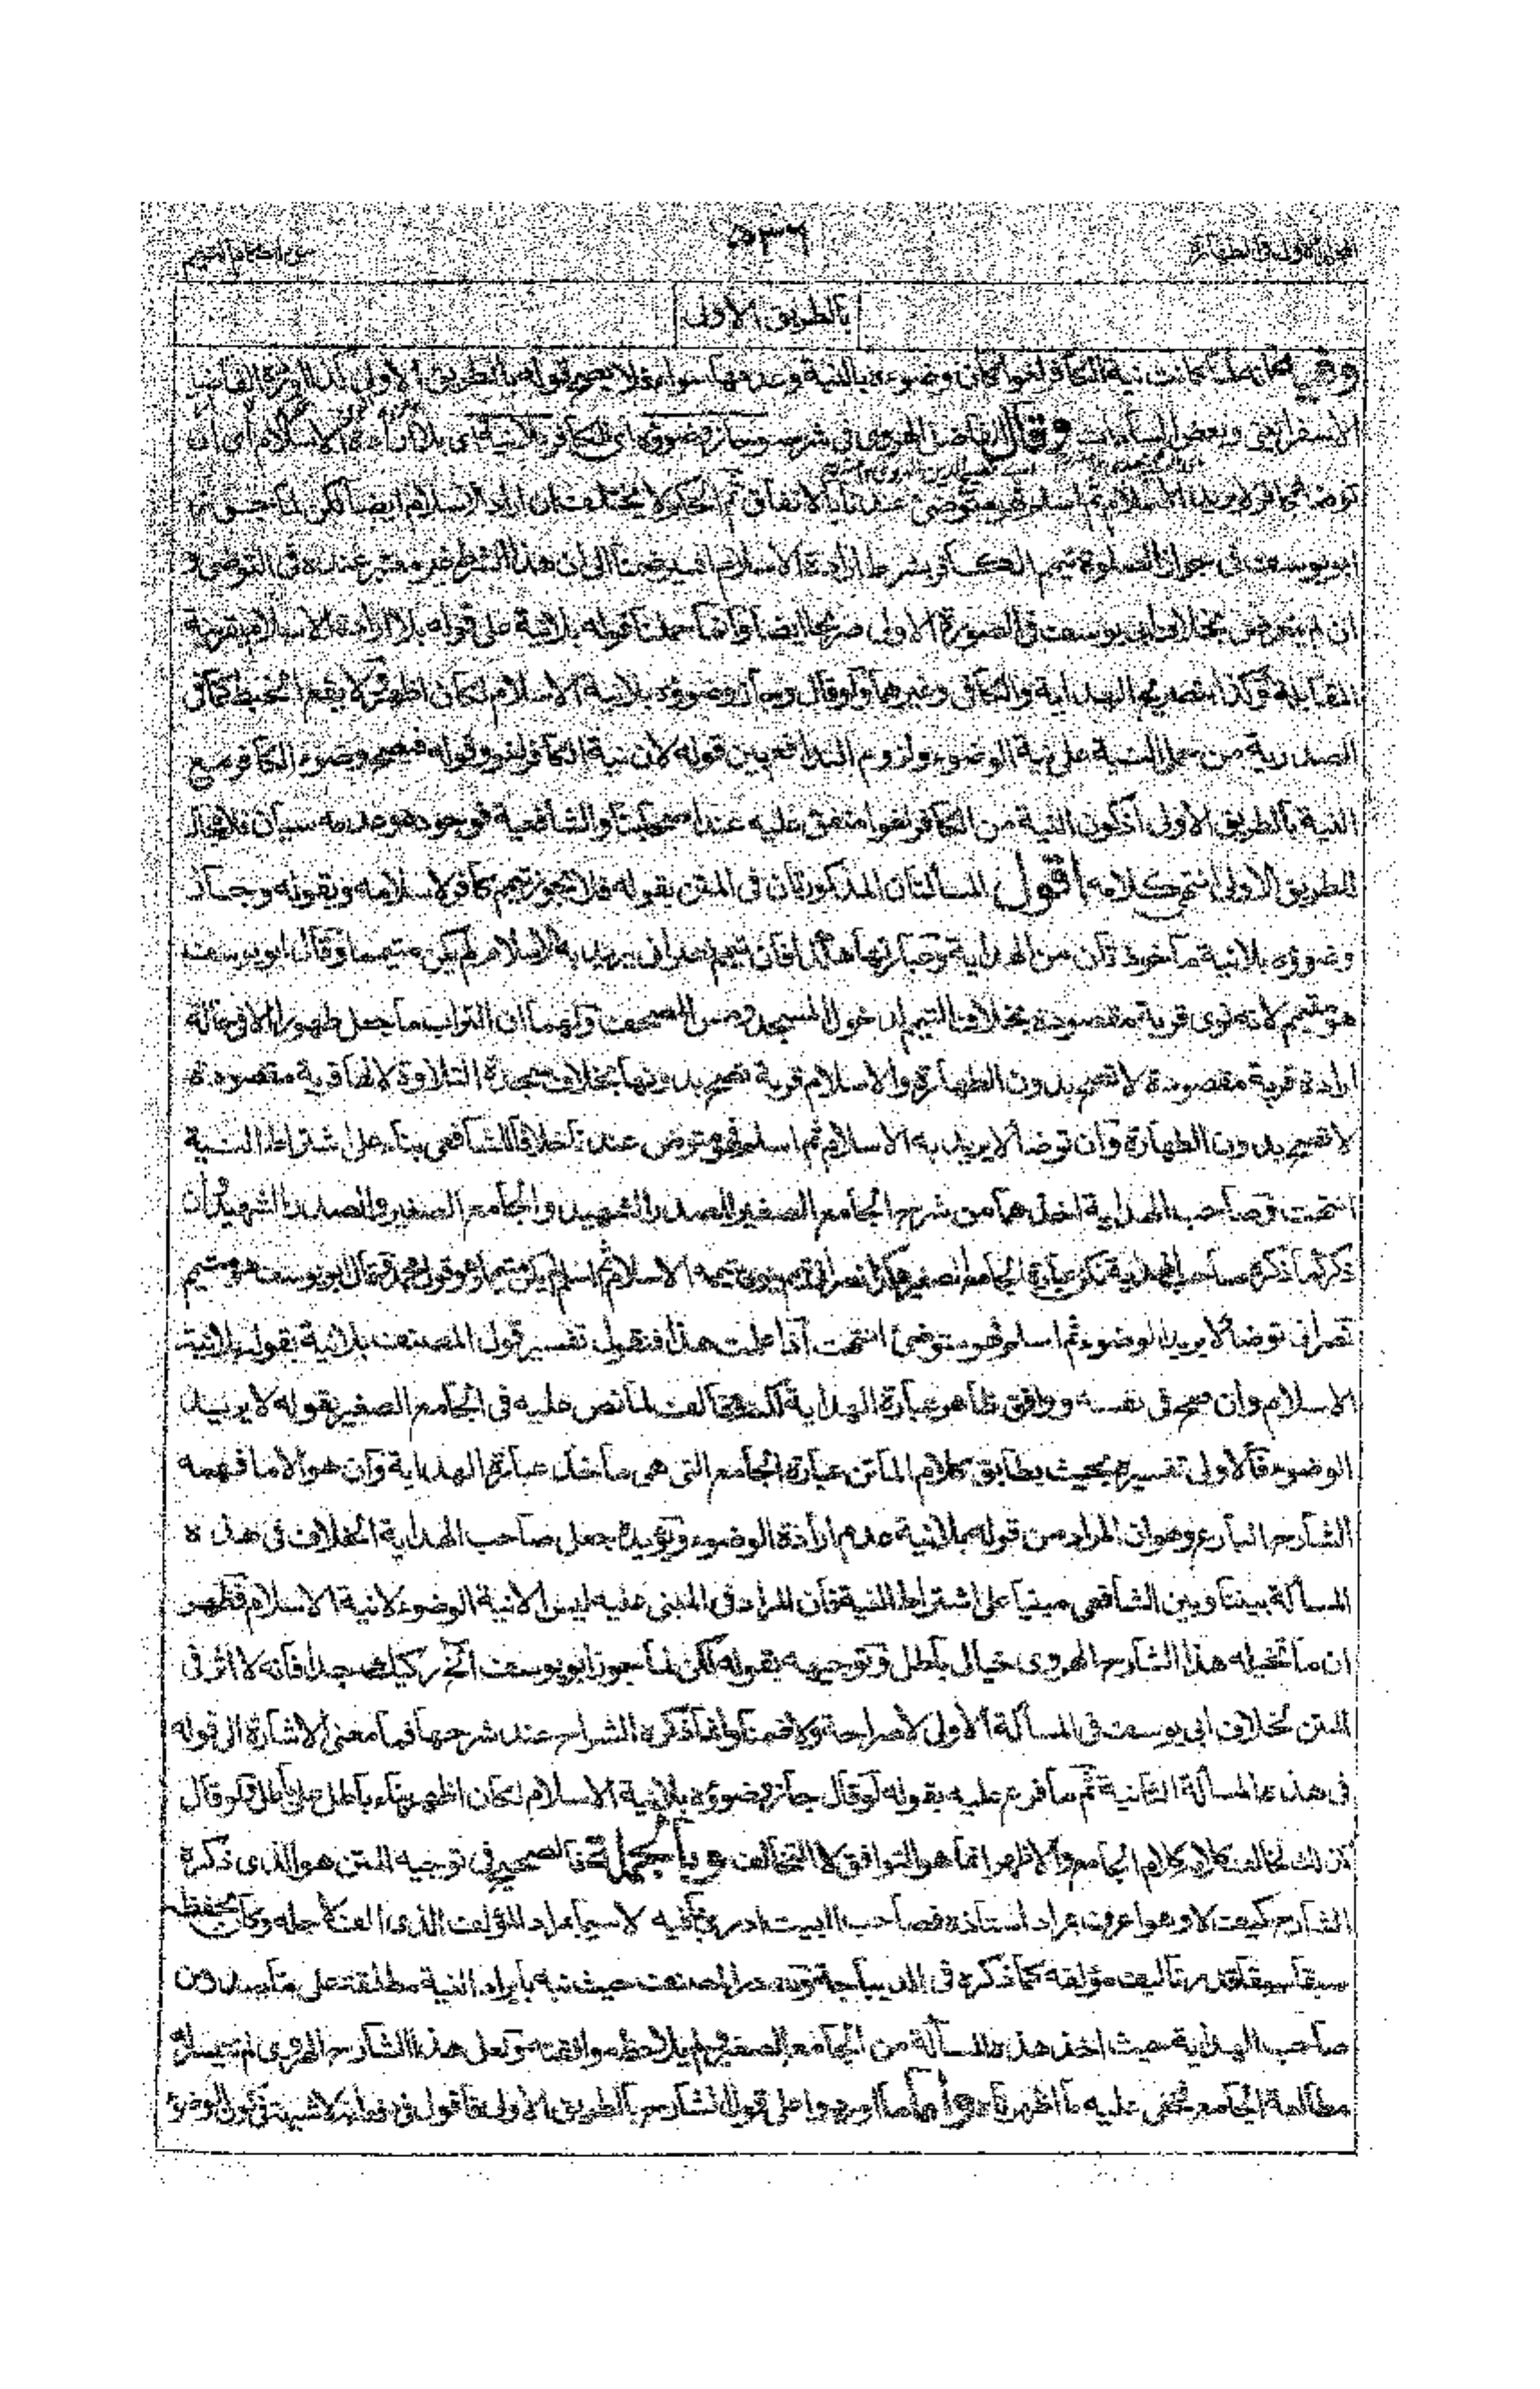 ٥٣٦
بالطريق الاولى
كانت نية الكافر لغوا كان وضوءه بالنية وعدمها سواء فلا يصح قوله بالطريق الاولى
وقال الفاضل الهروى فى شرحه وجاز وضوءه اى الكافر بلا نية اى بلا ارادة الاسلام اى ان
توضأ لا يريد الاسلام ثم اسلم فهو متوضئ عندنا بالاتفاق ثم الحكم لا يختلف ان اراد الاسلام ايضا لكن لما
ابو يوسف فى جواز الصلوة تيمم الكافر بشرط ارادة الاسلام اشير ضمنا الى ان هذا الشرط غير معتبر عنده فى التوضى و
ان لم يتعرض بخلاف ابى يوسف فى الصورة الاولى صريحا ايضا وانما حملنا قوله بلا نية على قوله بلا ارادة الاسلام بقرينة
المقابلة وكذا تصريح الهداية والكافى وغيرهما ولو قال وجاز وضوءه بلا نية الاسلام لكان اظهر لئلا يقع الخبط كما فى
الصدرية من حمل النية على نية الوضوء ولزوم التدافع بين قوله لان نية الكافر لغو وقوله فيصح وضوء الكافر مع
النية بالطريق الاولى اذ كون النية من الكافر لغوا متفق عليه عند اصحابنا والشافعية فوجوده وعدمه سيان فلا مجال
للطريق الاولى انتهى كلامه اقول المسألتان المذكورتان فى المتن بقوله فلا يجوز تيمم كافر لاسلامه وبقوله وجاز
وضوؤه بلا نية ماخوذتان من الهداية وعبارتها هكذا فان تيمم نصرانى يريد به الاسلام لم يكن متيمما وقال ابو يوسف
هو متيمم لانه نوى قربة مقصودة بخلاف التيمم لدخول المسجد ومس المصحف ولهما ان التراب ما جعل طهورا الا فى حالة
ارادة قربة مقصودة لا تصح بدون الطهارة والاسلام قربة تصح بدونها بخلاف سجدة التلاوة لانها قربة مقصودة
لا تصح بدون الطهارة وان توضأ لا يريد به الاسلام ثم اسلم فهو متوض عندنا خلافا للشافعى بناء على اشتراط النية
انتهت وصاحب الهداية اخذها من شرح الجامع الصغير للصدر الشهيد والجامع الصغير والصدر الشهيد وان
ذكر كما ذكره صاحب الهداية لكن عبارة الجامع الصغير هكذا نصرانى تيمم ينوى بتيممه الاسلام ثم اسلم لم يكن متيمما وهو قول محمد وقال ابو يوسف هو متيمم
نصرانى توضأ لا يريد الوضوء ثم اسلم فهو متوضئ انتهت اذا علمت هذا فنقول تفسير قول المصنف بلا نية بقوله بلا نية
الاسلام وان صح فى نفسه ووافق ظاهر عبارة الهداية لكنه مخالف لما نص عليه فى الجامع الصغير بقوله لا يريد
الوضوء فالاولى تفسيره بحيث يطابق كلام الماتن عبارة الجامع التى هى ماخذ عبارة الهداية وان هو الا ما فهمه
الشارح البارع وهو ان المراد من قوله بلا نية عدم ارادة الوضوء ويؤيده جعل صاحب الهداية الخلاف فى هذه
المسألة بيننا وبين الشافعى مبنيا على اشتراط النية فان المراد فى المبنى عليه ليس الا نية الوضوء لا نية الاسلام فظهر
ان ما تخيله هذا الشارح الهروى خيال باطل وتوجيهه بقوله لكن لما جوز ابو يوسف الخ ركيك جدا فانه لا اثر فى
المتن لخلاف ابى يوسف فى المسألة الاولى لا صراحة ولا ضمنا وانما ذكره الشراح عند شرحها فما معنى الاشارة الى قوله
فى هذه المسألة الثانية ثم ما فرع عليه بقوله لو قال جاز وضوؤه بلا نية الاسلام لكان اظهر بناء باطل على باطل فلو قال
ذلك لخالف كلامه كلام الجامع والاظهر انما هو التوافق لا التخالف وبالجملة فالصحيح فى توجيه المتن هو الذى ذكره
الشارح كيف لا وهو اعرف بمراد استاذه فصاحب البيت ادرى بما فيه لا سيما مراد المؤلف الذى الف لاجله وكان يحفظه
سبقا سبقا قدر تاليف مؤلفه كما ذكره فى الديباجة ولله در المصنف حيث نبه بايراد النية مطلقة على ما صدر من
صاحب الهداية حيث اخذ هذه المسألة من الجامع الصغير ولم يلاحظ موافقته ولعل هذا الشارح الهروى لم تتيسر له
مطالعة الجامع فخفى عليه ما اظهرناه واما ما اوردوا على قول الشارح بالطريق الاولى فاقول فى دفعه لا شبهة فى كون الوضوء